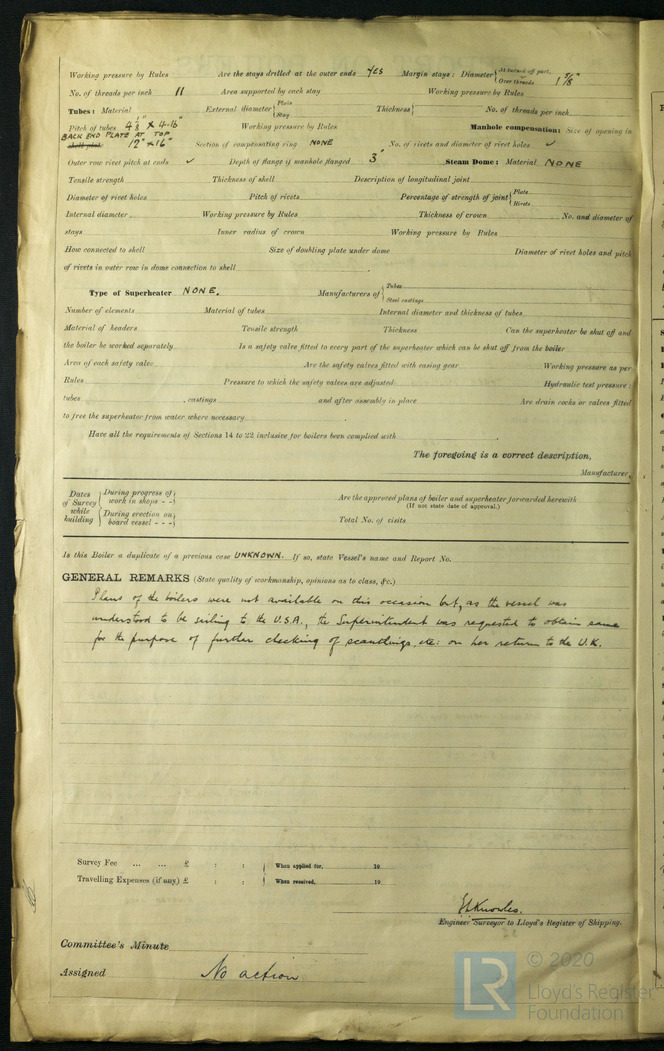 Working pressure by Rules Are the stays drilled at the outer ends YES Margin stays: Diameter { At turned off part, Over threads 1 5/8"
No. of threads per inch 11 Area supported by each stay Working pressure by Rules
Tubes: Material External diameter { Plain Stay Thickness { No. of threads per inch
Pitch of tubes 4 1/8" × 4 Manhole compensation: Size of opening in
Working pressure by Rules
BACK END PLATE AT TOP
shell plate 12" × 16" Section of compensating ring NONE No. of rivets and diameter of rivet holes ✓
Outer row rivet pitch at ends ✓ Depth of flange if manhole flanged 3" Steam Dome: Material NONE
Tensile strength Thickness of shell Description of longitudinal joint
Diameter of rivet holes Pitch of rivets Percentage of strength of joint { Plate Rivets
Internal diameter Working pressure by Rules Thickness of crown No. and diameter of
stays Inner radius of crown Working pressure by Rules
How connected to shell Size of doubling plate under dome Diameter of rivet holes and pitch
of rivets in outer row in dome connection to shell
Type of Superheater NONE. Manufacturers of { Tubes Steel castings
Number of elements Material of tubes Internal diameter and thickness of tubes
Material of headers Tensile strength Thickness Can the superheater be shut off and
the boiler be worked separately Is a safety valve fitted to every part of the superheater which can be shut off from the boiler
Area of each safety valve Are the safety valves fitted with easing gear Working pressure as per
Rules Pressure to which the safety valves are adjusted Hydraulic test pressure:
tubes , castings and after assembly in place Are drain cocks or valves fitted
to free the superheater from water where necessary
Have all the requirements of Sections 14 to 22 inclusive for boilers been complied with
The foregoing is a correct description,
Manufacturer.
Dates of Survey while building { During progress of work in shops - - } { During erection on board vessel - - - }
Are the approved plans of boiler and superheater forwarded herewith
(If not state date of approval.)
Total No. of visits
Is this Boiler a duplicate of a previous case UNKNOWN. If so, state Vessel's name and Report No.
GENERAL REMARKS (State quality of workmanship, opinions as to class, &c.)
Plans of the boilers were not available on this occasion but, as the vessel was
understood to be sailing to the U.S.A., the Superintendent was requested to obtain same
for the purpose of further checking of scantlings, etc: on her return to the U.K.
Survey Fee ... ... £ : : When applied for, 19
Travelling Expenses (if any) £ : : When received, 19
Knowles.
Engineer Surveyor to Lloyd's Register of Shipping.
Committee's Minute
Assigned No action.
LR © 2020
Lloyd's Register
Foundation